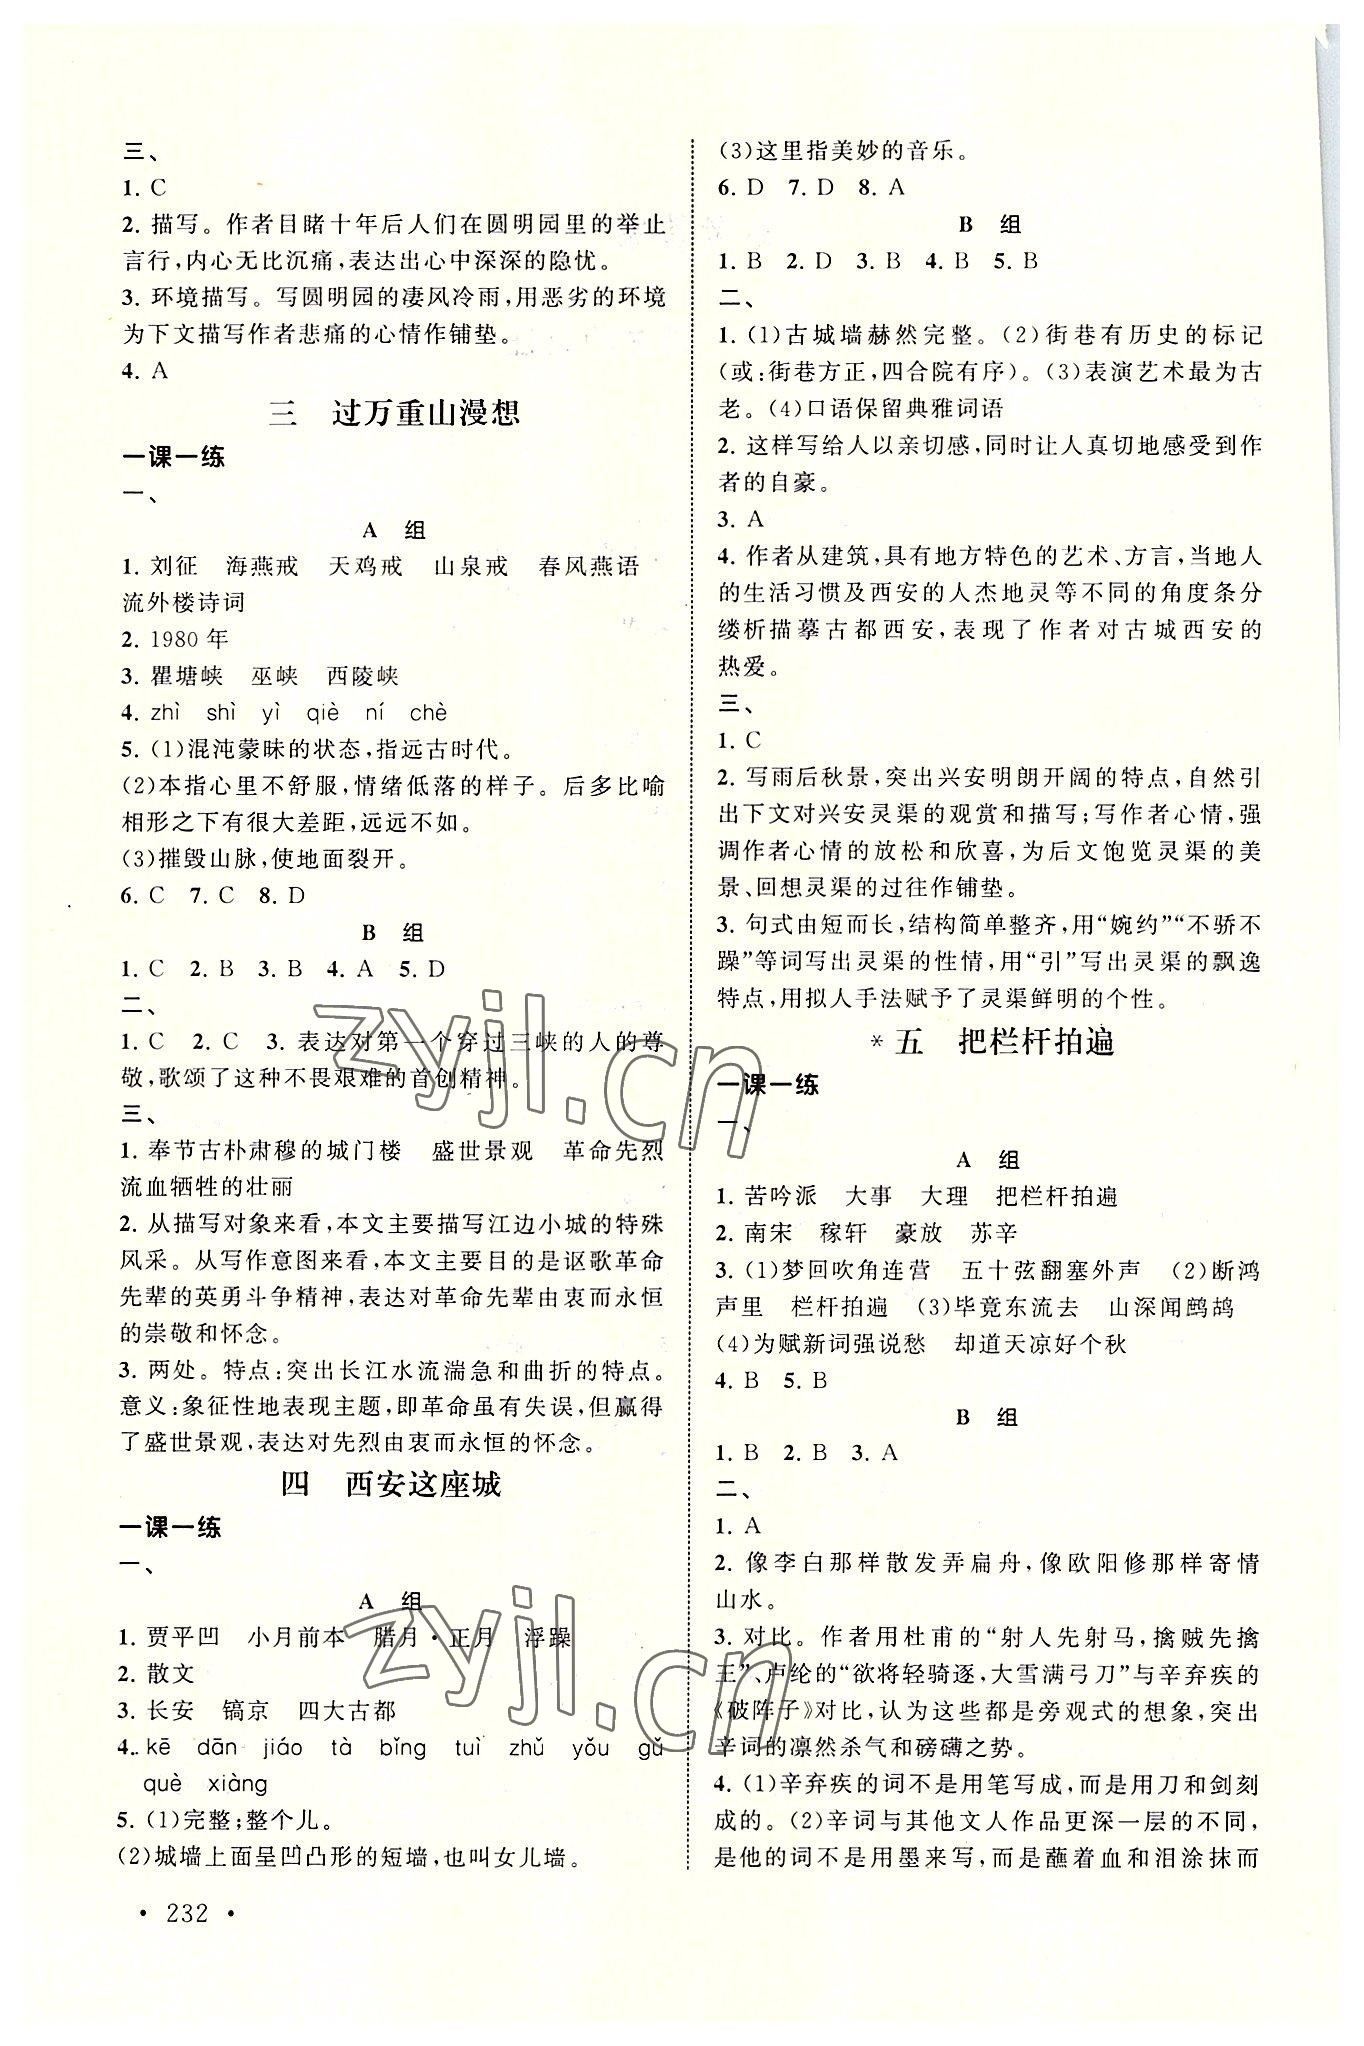 三、
1. C
2. 描写。作者目睹十年后人们在圆明园里的举止
言行,内心无比沉痛,表达出心中深深的隐忧。
3. 环境描写。写圆明园的凄风冷雨,用恶劣的环境
为下文描写作者悲痛的心情作铺垫。
4. A
三 过万重山漫想
一课一练
一、
A 组
1. 刘征 海燕戒 天鸡戒 山泉戒 春风燕语
流外楼诗词
2. 1980 年
3. 瞿塘峡 巫峡 西陵峡
4. zhì shì yì qiè ní chè
5. (1)混沌蒙昧的状态,指远古时代。
(2)本指心里不舒服,情绪低落的样子。后多比喻
相形之下有很大差距,远远不如。
(3)摧毁山脉,使地面裂开。
6. C 7. C 8. D
B 组
1. C 2. B 3. B 4. A 5. D
二、
1. C 2. C 3. 表达对第一个穿过三峡的人的尊
敬,歌颂了这种不畏艰难的首创精神。
三、
1. 奉节古朴肃穆的城门楼 盛世景观 革命先烈
流血牺牲的壮丽
2. 从描写对象来看,本文主要描写江边小城的特殊
风采。从写作意图来看,本文主要目的是讴歌革命
先辈的英勇斗争精神,表达对革命先辈由衷而永恒
的崇敬和怀念。
3. 两处。特点:突出长江水流湍急和曲折的特点。
意义:象征性地表现主题,即革命虽有失误,但赢得
了盛世景观,表达对先烈由衷而永恒的怀念。
四 西安这座城
一课一练
一、
A 组
1. 贾平凹 小月前本 腊月·正月 浮躁
2. 散文
3. 长安 镐京 四大古都
4. kē dān jiáo tà bǐng tuì zhǔ yǒu gǔ
què xiàng
5. (1)完整;整个儿。
(2)城墙上面呈凹凸形的短墙,也叫女儿墙。
· 232 ·
(3)这里指美妙的音乐。
6. D 7. D 8. A
B 组
1. B 2. D 3. B 4. B 5. B
二、
1. (1)古城墙赫然完整。(2)街巷有历史的标记
(或:街巷方正,四合院有序)。(3)表演艺术最为古
老。(4)口语保留典雅词语
2. 这样写给人以亲切感,同时让人真切地感受到作
者的自豪。
3. A
4. 作者从建筑,具有地方特色的艺术、方言,当地人
的生活习惯及西安的人杰地灵等不同的角度条分
缕析描摹古都西安,表现了作者对古城西安的
热爱。
三、
1. C
2. 写雨后秋景,突出兴安明朗开阔的特点,自然引
出下文对兴安灵渠的观赏和描写;写作者心情,强
调作者心情的放松和欣喜,为后文饱览灵渠的美
景、回想灵渠的过往作铺垫。
3. 句式由短而长,结构简单整齐,用“婉约”“不骄不
躁”等词写出灵渠的性情,用“引”写出灵渠的飘逸
特点,用拟人手法赋予了灵渠鲜明的个性。
* 五 把栏杆拍遍
一课一练
一、
A 组
1. 苦吟派 大事 大理 把栏杆拍遍
2. 南宋 稼轩 豪放 苏辛
3. (1)梦回吹角连营 五十弦翻塞外声 (2)断鸿
声里 栏杆拍遍 (3)毕竟东流去 山深闻鹧鸪
(4)为赋新词强说愁 却道天凉好个秋
4. B 5. B
B 组
1. B 2. B 3. A
二、
1. A
2. 像李白那样散发弄扁舟,像欧阳修那样寄情
山水。
3. 对比。作者用杜甫的“射人先射马,擒贼先擒
王”、卢纶的“欲将轻骑逐,大雪满弓刀”与辛弃疾的
《破阵子》对比,认为这些都是旁观式的想象,突出
辛词的凛然杀气和磅礴之势。
4. (1)辛弃疾的词不是用笔写成,而是用刀和剑刻
成的。(2)辛词与其他文人作品更深一层的不同,
是他的词不是用墨来写,而是蘸着血和泪涂抹而
zyjl.cn
zyjl.cn